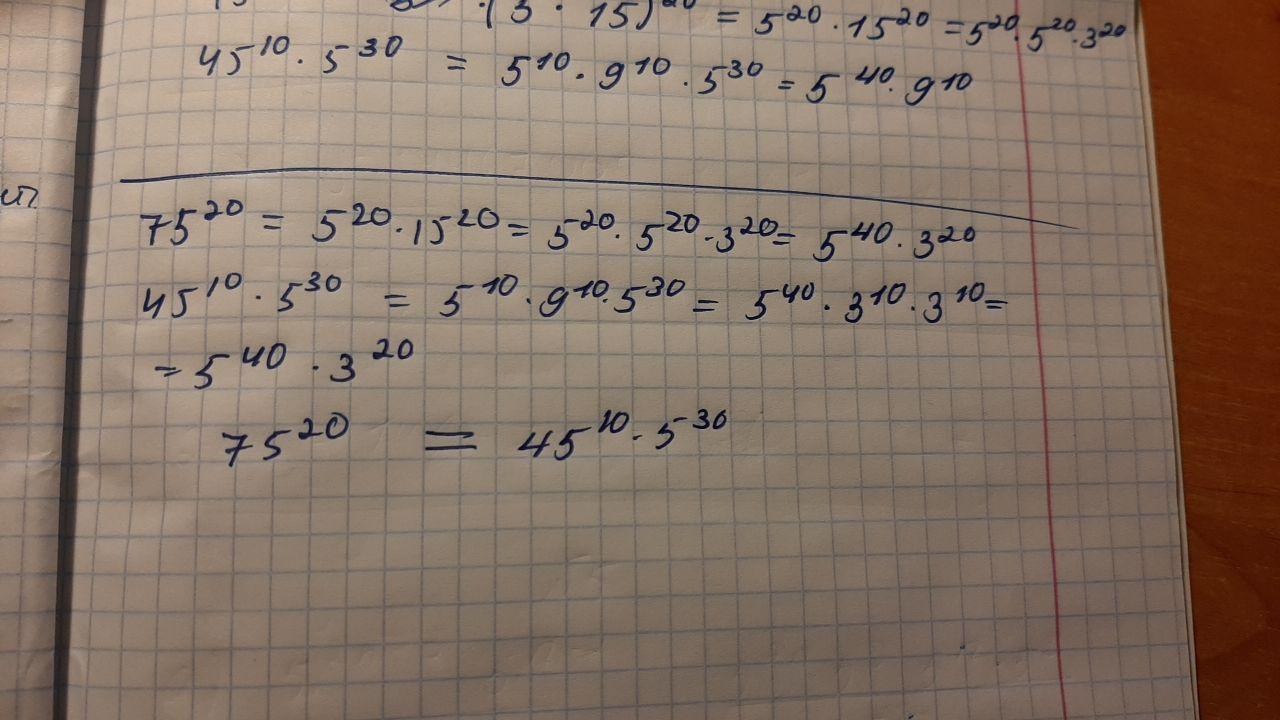 ·(5 · 15)²⁰ = 5²⁰ · 15²⁰ = 5²⁰ · 5²⁰ · 3²⁰
45¹⁰ · 5³⁰ = 5¹⁰ · 9¹⁰ · 5³⁰ = 5⁴⁰ · 9¹⁰
75²⁰ = 5²⁰ · 15²⁰ = 5²⁰ · 5²⁰ · 3²⁰ = 5⁴⁰ · 3²⁰
45¹⁰ · 5³⁰ = 5¹⁰ · 9¹⁰ · 5³⁰ = 5⁴⁰ · 3¹⁰ · 3¹⁰ =
= 5⁴⁰ · 3²⁰
75²⁰ = 45¹⁰ · 5³⁰